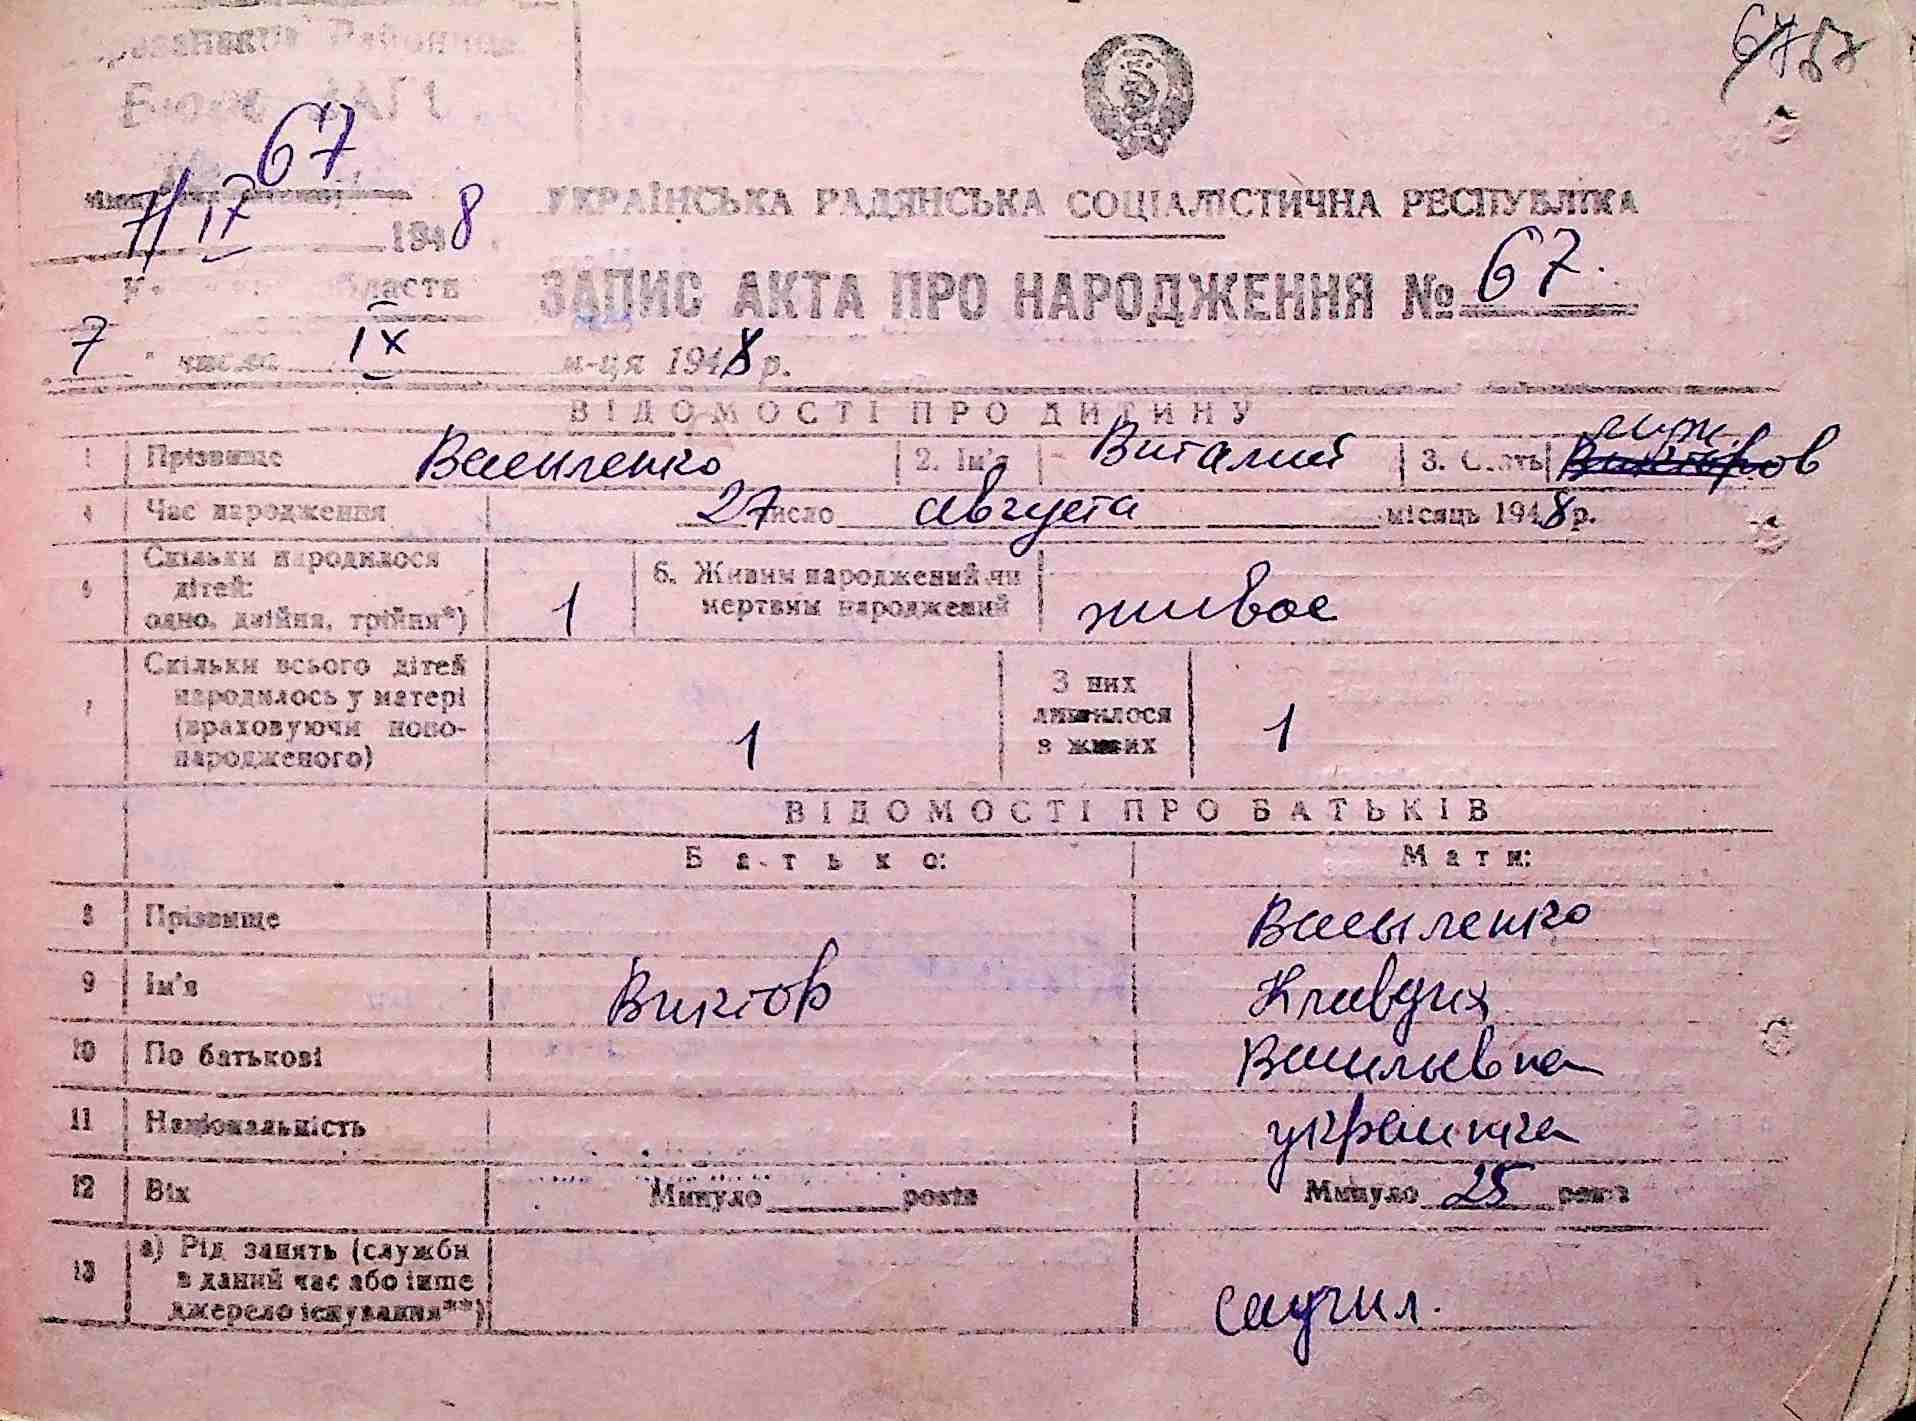 67
67
7/IX 1948
УКРАЇНСЬКА РАДЯНСЬКА СОЦІАЛІСТИЧНА РЕСПУБЛІКА
ЗАПИС АКТА ПРО НАРОДЖЕННЯ № 67.
7 числа IX м-ця 1948 р.
ВІДОМОСТІ ПРО ДИТИНУ
1 Прізвище Василенко 2. Ім'я Виталий 3. Стать
4 Час народження 27 число августа місяць 1948 р.
5 Скільки народилося дітей: одно, двійня, трійня*) 1 6. Живим народжений чи мертвим народжений живое
7 Скільки всього дітей народилось у матері (враховуючи новонародженого) 1 З них лишилося в живих 1
ВІДОМОСТІ ПРО БАТЬКІВ
Батько: Мати:
8 Прізвище Васыленко
9 Ім'я Виктор Клавдия
10 По батькові Васильевна
11 Національність украинка
12 Вік Минуло років Минуло 25 років
13 а) Рід занять (служби
в даний час або інше
джерело існування**)